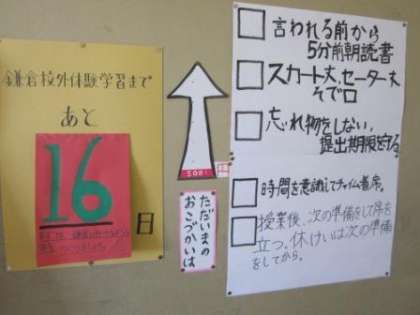 鎌倉校外体験学習まで
あと
16
日
ただいまの
おこづかいは
言われる前から
5分前朝読書
スカート丈、セーター丈
そで口
忘れ物をしない、
提出期限を守る
時間を意識してチャイム着席。
授業後、次の準備をして席を
立つ、休けいは次の準備
をしてから。